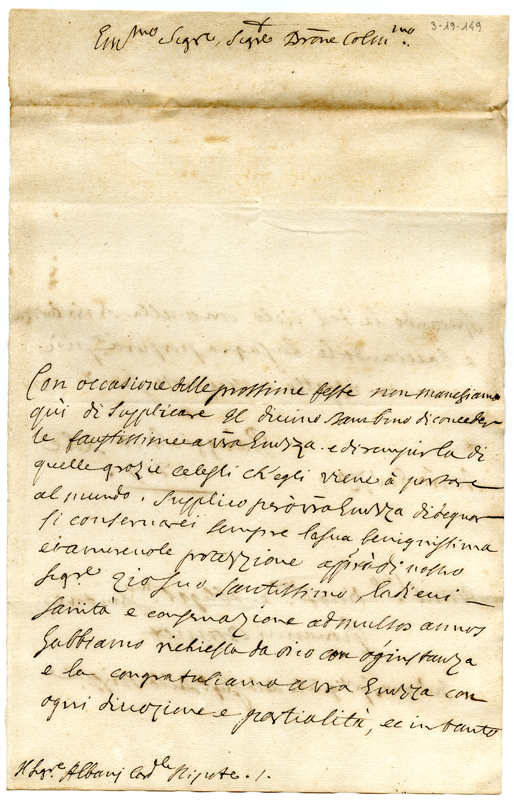 3-13-149
Em.mo Sig.re, Sig.re Prone Colm.mo
Con occasione delle prossime feste non manchiamo
quì di supplicare il divino Bambino di conceder
le faustissime a vra Emza. e di rempirla di
quelle grazie celesti ch'egli viene à portare
al mondo. Supplico però vra Emza di degnar
si conservarci sempre la sua benignissima
et amorevole protezzione app.o di nostro
Sig.re zio suo santissimo, la di cui
sanità e conservazione ad multos annos
habbiamo richiesta da Dio con ogni instanza
e la congratuliamo a vra Emza con
ogni divozione e partialità, et in tanto
Il Sig.re Albani Card.le Nipote. /.